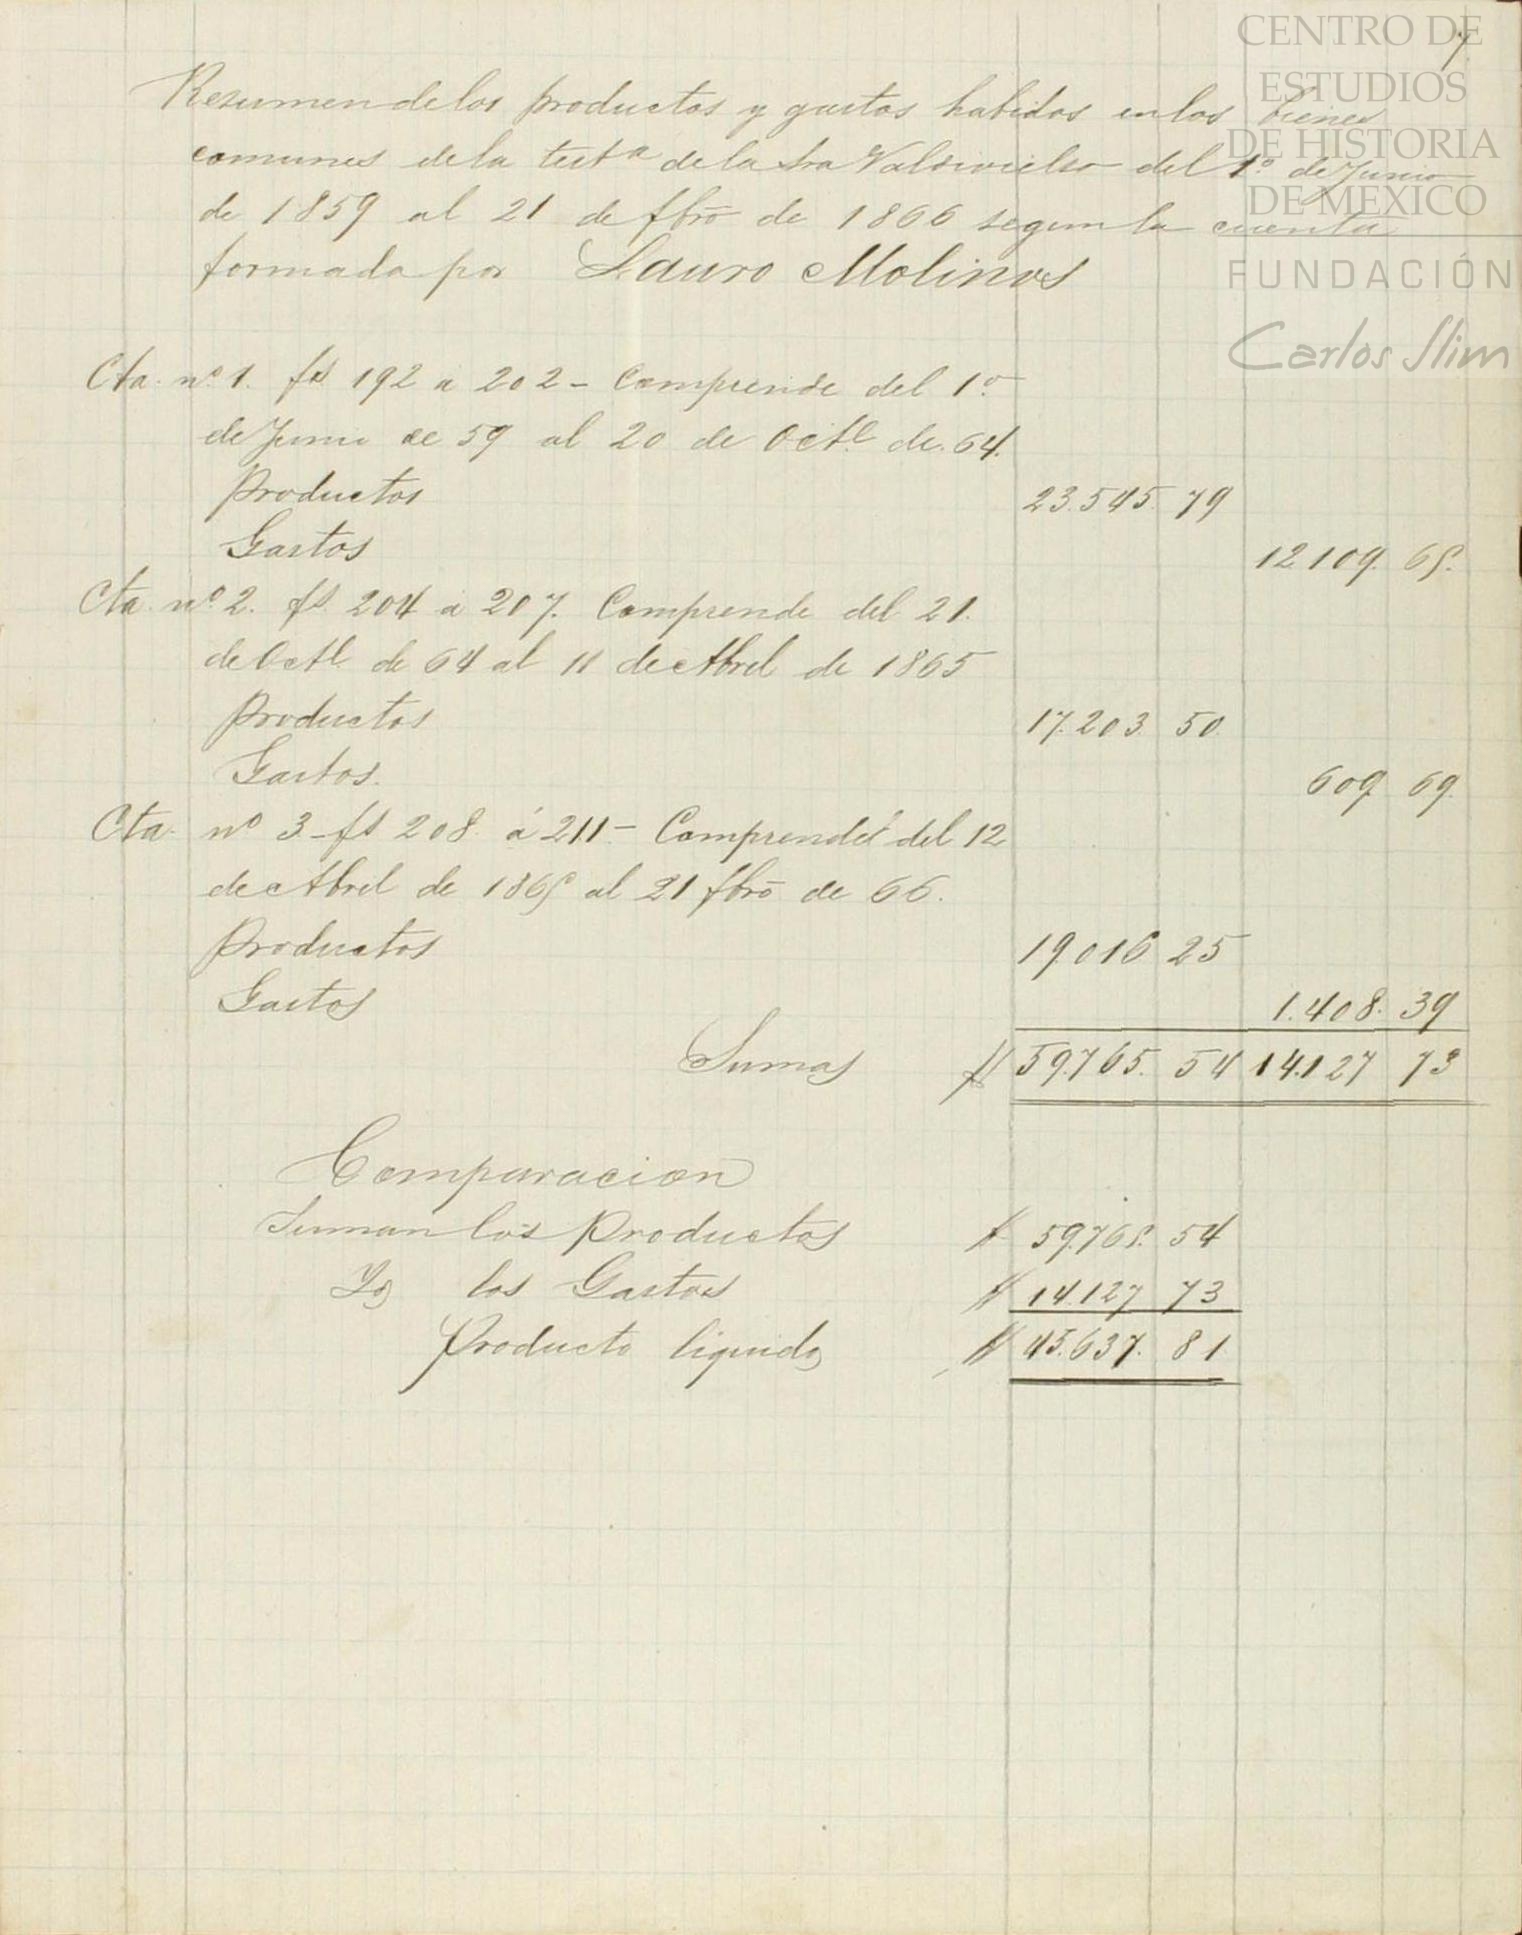 7
CENTRO DE
ESTUDIOS
DE HISTORIA
DE MEXICO
FUNDACIÓN
Carlos Slim
Resumen de los productos y gastos habidos en los bienes
comunes de la testª de la Sra Valdivielso del 1º de Junio
de 1859 al 21 de fbrō de 1866 segun la cuenta
formada por Lauro Molinos
Cta. nº 1. fs 192 a 202 - Comprende del 1º
de Junio de 59 al 20 de Octe de 64.
Productos 23.545. 79
Gastos 12.109. 65.
Cta. nº 2. fs 204 a 207. Comprende del 21.
de Octe de 64 al 11 de Abril de 1865
Productos 17.203 50.
Gastos. 609 69.
Cta. nº 3 - fs 208 á 211 - Comprende del 12
de Abril de 1865 al 21 fbrō de 66.
Productos 19.016 25
Gastos 1.408. 39
Sumas $ 59.765. 54 14.127 73
Comparacion
Suman los Productos $ 59.765. 54
Yd los Gastos $ 14.127 73
Producto liquido $ 45.637. 81